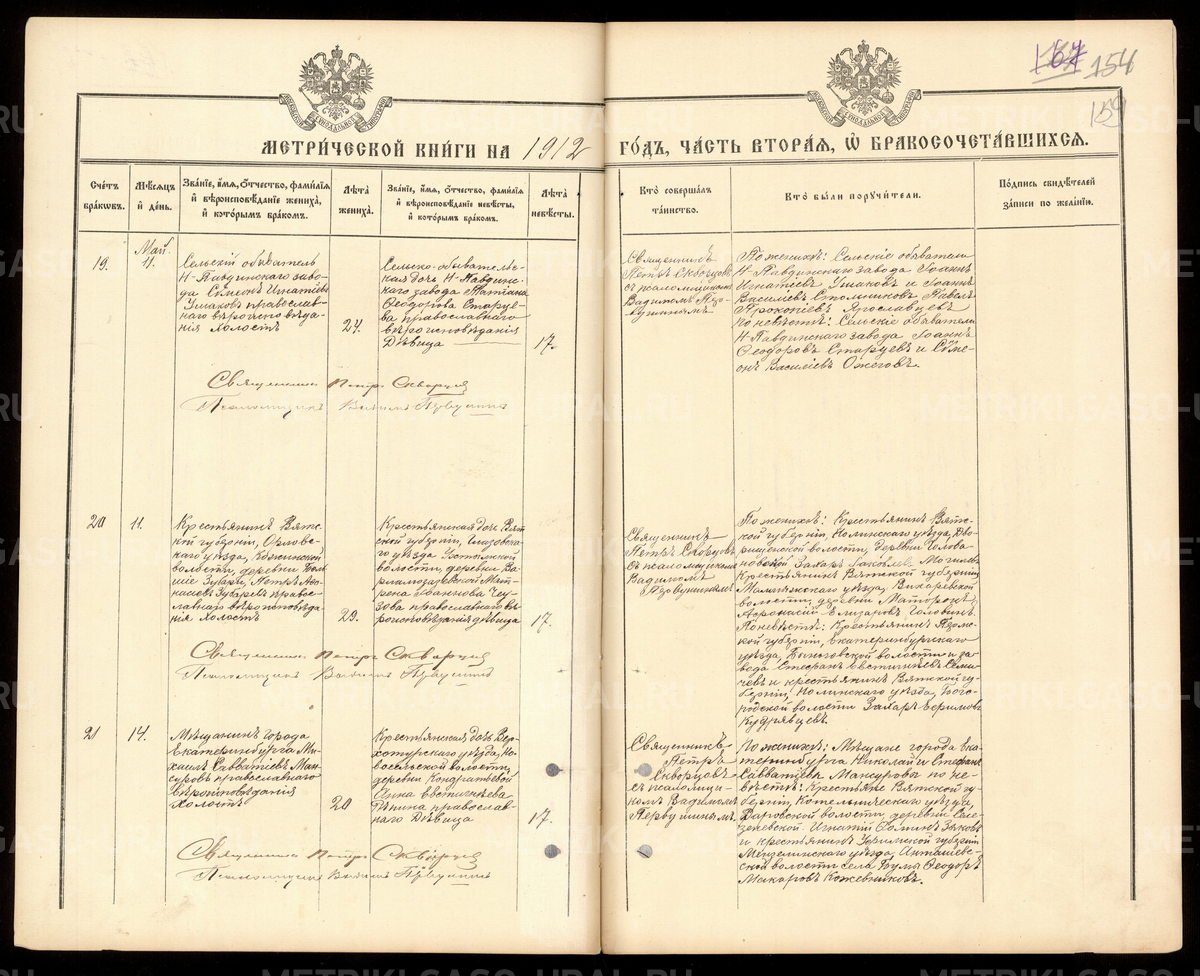 167 154
159
МЕТРИ́ЧЕСКОЙ КНИ́ГИ НА 1912 ГО́ДЪ, ЧА́СТЬ ВТОРА́Я, Ѡ҆ БРАКОСОЧЕТА́ВШИХСЯ.
Сче́тъ бра́ковъ.
Мѣ́сяцъ и҆ де́нь.
Зва́нїе, и҆́мя, ѻ҆́тчество, фами́лїя и҆ вѣроисповѣ́данїе жениха́, и҆ кото́рымъ бра́комъ.
Лѣ́та жениха́.
Зва́нїе, и҆́мя, ѻ҆́тчество, фами́лїя и҆ вѣроисповѣ́данїе невѣ́сты, и҆ кото́рымъ бра́комъ.
Лѣ́та невѣ́сты.
Кто̀ соверша́лъ та́инство.
Кто̀ бы́ли поручи́тели.
По́дпись свидѣ́телей за́писи по жела́нїю.
19.
Май.
11.
Сельскій обыватель
Н-Павдинскаго заво-
да Симеонъ Игнатіевъ
Ушаковъ православ-
наго вѣроисповѣда-
нія холостъ
24.
Сельско-обыватель-
ская дочь Н-Павдинс-
каго завода Татіана
Ѳеодорова Старце-
ва православнаго
вѣроисповѣданія
Дѣвица
17.
Священникъ
Петръ Скворцовъ
съ псаломщикомъ
Вадимомъ Перв-
ушинымъ
По женихѣ: Сельскіе обыватели
Н-Павдинскаго завода Іоаннъ
Игнатіевъ Ушаковъ и Іоаннъ
Василіевъ Стольниковъ, Павелъ
Прокопіевъ Ярославцевъ
по невѣстѣ: Сельскіе обыватели
Н-Павдинскаго завода Іоаннъ
Ѳеодоровъ Старцевъ и Симе-
онъ Василіевъ Ожеговъ.
Священникъ Петръ Скворцов
Псаломщикъ Вадимъ Первушинъ
20
11.
Крестьянинъ Вятс-
кой губерніи, Орловс-
каго уѣзда,
волости, деревни Боль-
шіе Зубари, Петръ Аѳа-
насіевъ Зубаревъ право-
славнаго вѣроисповѣда-
нія холостъ
29.
Крестьянская дочь Вят-
ской губерніи, Глазовска-
го уѣзда
волости, деревни Ва-
Мат-
рена Іоаннова Чеу-
зова православнаго вѣ-
роисповѣданія дѣвица
17.
Священникъ
Петръ Скворцовъ
съ псаломщикомъ
Вадимомъ
Первушинымъ
По женихѣ: Крестьянинъ Вятс-
кой губерніи, Нолинскаго уѣзда,
волости, деревни Голова-
новской Захаръ Іаковлевъ Могильни
Крестьянинъ Вятской губерніи
Малмыжскаго уѣзда, Вихаревской
волости, деревни
Аѳанасій Елизаровъ Головинъ.
По невѣстѣ: Крестьянинъ Перм-
ской губерніи, Екатеринбургскаго
уѣзда, Быньговской волости и за-
вода Стефанъ Евстигнѣевъ Семи-
чевъ и крестьянинъ Вятской гу-
берніи, Нолинскаго уѣзда, Бого-
родской волости Захаръ Ефимовъ
Кудрявцевъ.
Священникъ Петръ Скворцов
Псаломщикъ Вадимъ Первушинъ
21
14.
Мѣщанинъ города
Екатеринбурга Ми-
хаилъ СавватіевъМан-
суровъ православнаго
вѣроисповѣданія
холостъ
20
Крестьянская дочь Вер-
хотурскаго уѣзда, Но-
восельской волости,
деревни Кондратьевой
Анна Евстигнѣева
Дѣнина православ-
наго Дѣвица
17.
Священникъ
Петръ
Скворцовъ
съ псаломщи-
комъ Вадимом
Первушинымъ
По женихѣ: Мѣщане города Ека-
теринбурга Николай и Стефанъ
Савватіевы Мансуровы по не-
вѣстѣ: Крестьяне Вятской гу-
берніи, Котельническаго уѣзда,
Даровской волости, деревни Селе-
зеневской Игнатій Ѳоминъ Зыковъ
и крестьянинъ Уфимской губерніи
Мензелинскаго уѣзда,
ской волости села Ѳеодоръ
Макаровъ Кожевниковъ.
Священникъ Петръ Скворцов
Псаломщикъ Вадимъ Первушинъ
METRIKI.GASO-URAL.RU